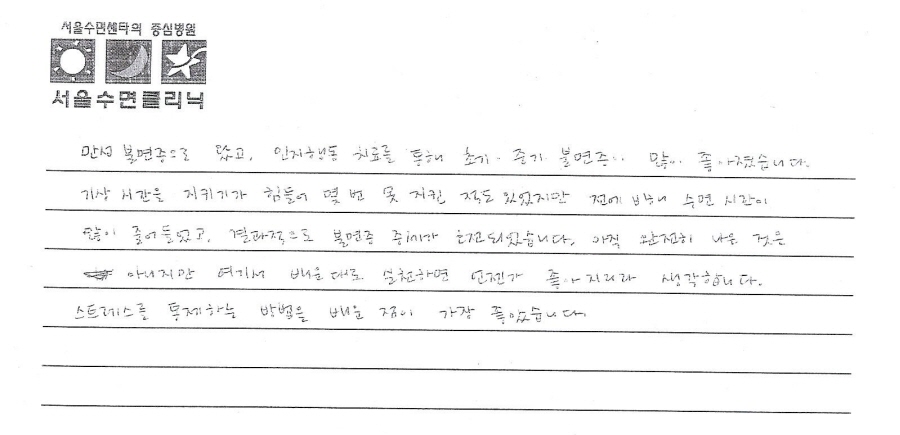 서울수면센타의 중심병원
서울수면클리닉
만성 불면증으로 왔고, 인지행동 치료를 통해 초기·중기 불면증이 많이 좋아졌습니다.
기상 시간을 지키기가 힘들어 몇 번 못 지킨 적도 있었지만 전에 비해 수면 시간이
많이 줄어들었고, 결과적으로 불면증 증세가 호전되었습니다. 아직 완전히 나은 것은
아니지만 여기서 배운대로 실천하면 언젠가 좋아지리라 생각합니다.
스트레스를 통제하는 방법을 배운 점이 가장 좋았습니다.